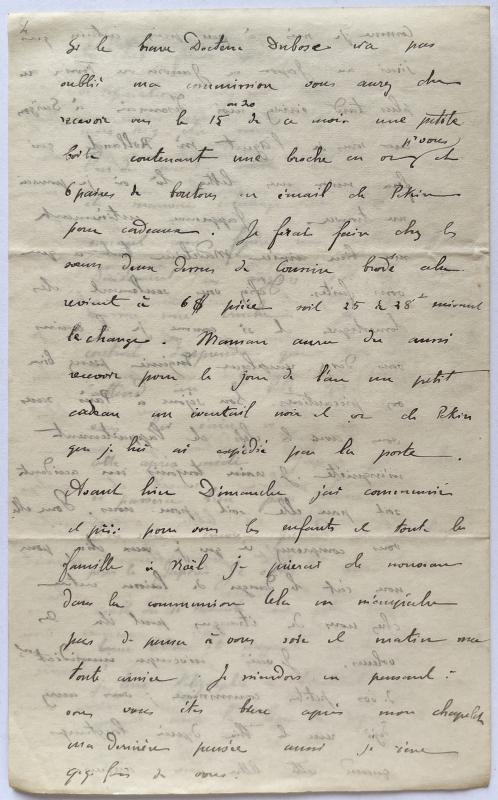 4
Si le brave Docteur Dubosc n'a pas
oublié ma commission vous aurez du
recevoir vers le 15 ou 20 de ce mois une petite
boîte contenant une broche en or pr vous et
6 paires de boutons en émail de Pékin
pour cadeaux. Je ferai faire chez les
sœurs deux dessus de coussin brodé cela
revient à 6$ pièce soit 25 à 28 f suivant
le change. Maman aura du aussi
recevoir pour le jour de l'an un petit
cadeau un éventail noir et or de Pékin
que je lui ai expédié par la poste.
Avant hier Dimanche j'ai communié
et prié pour vous les enfants et toute la
famille à Noël je prierai de nouveau
dans la communion cela ne m'empêche
pas de penser à vous soir et matin ma
toute aimée. Je m'endors en pensant à
vous vous êtes bien après mon chapelet
ma dernière pensée aussi je rêve
qq fois de vous.